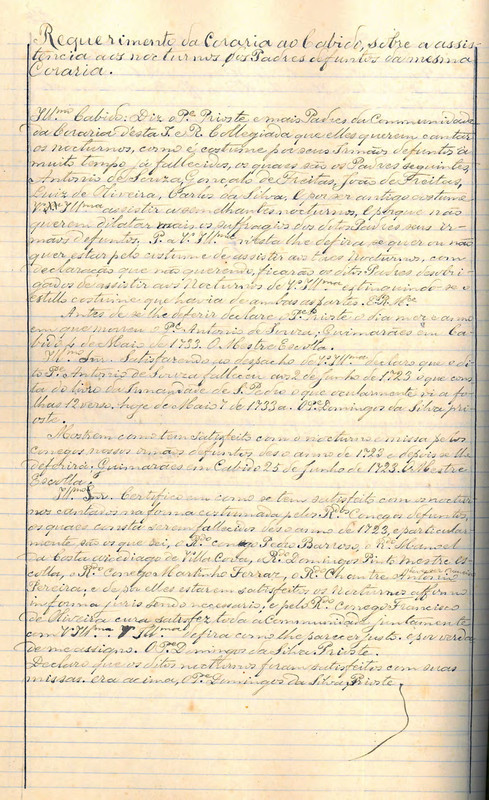 Requerimento da Coraria ao Cabido, sobre a assis-
tencia aos nocturnos, dos Padres defuntos da mesma
Coraria.
Ill.mo Cabido. Diz o P.e Prioste e mais Padres da Communidade
da Coraria d'esta I. e R. Collegiada que elles querem cantar
os nocturnos, como é costume por seus Irmãos defuntos a
muito tempo já fallecidos, os quaes são os Padres seguintes,
Antonio de Souza, Gonçalo de Freitas, João de Freitas,
Luiz de Oliveira, Carlos da Silva. E por ser antigo costume
V.as Ill.mas assistir a semelhantes nocturnos. E porque não
querem dilatar mais os suffragios dos ditos Padres seus ir-
mãos defuntos. P. a V.as Ill.mas n'esta lhe defira se quer ou não
quer estar pelo costume de assistir aos ditos Nocturnos, com
declaração que não querendo, ficarão os ditos Padres desobri-
gados de assistir aos Nocturnos de V.as Ill.mas extinguindo-se o
estillo costume que havia de ambas as partes. E. R. M.ce
Antes de se lhe deferir declare o P.e Prioste o dia mez e anno
em que morreu o P.e Antonio de Souza; Guimarães em Ca-
bido de Maio de 1733. O Mestre Escolla.
Ill.mo Snr. Satisfazendo ao despacho de V.as Ill.mas declaro que o di-
to P.e Antonio de Souza falleceu aos 2 de Junho de 1723 o que cons-
ta do livro da Irmandade de S. Pedro o que ocularmente vi a fo-
lhas 12 verso. hoje de Maio de 1733 a. O P.e Domingos da Silva prio-
ste.
Mostrem como tem satisfeito com o nocturno e missa pelos
conegos nossos irmãos defuntos des o anno de 1723 e depois se lhe
deferirá. Guimarães em Cabido 25 de Junho de 1723. O Mestre
Escolla.
Ill.mo Snr. Certifico em como se tem satisfeito com os noctur-
nos cantados na forma costumada pelos R.dos Conegos defuntos,
os quaes consta serem fallecidos des o anno de 1723, e particular-
mente são os que sei, o R.do conego Pedro Barroso, o R.do Manoel
da Costa arcediago de Villa Cova, o R.do Domingos Pinto Mestre Es-
colla, o R.do Conego Martinho Ferraz, o R.do Chantre Antonio
Pereira, e de por elles estarem satisfeitos os Nocturnos affirmo
in forma juris sendo necessario, e pelo R.do Conego Francisco
de Oliveira cura satisfez toda a Communidade juntamente
com V.as Ill.mas V. Ill.mas defira como lhe parecer justo. e por verda-
de me assigno. O P.e Domingos da Silva Prioste.
Declaro que os ditos nocturnos foram satisfeitos com suas
missas. era acima, O P.e Domingos da Silva, Prioste.